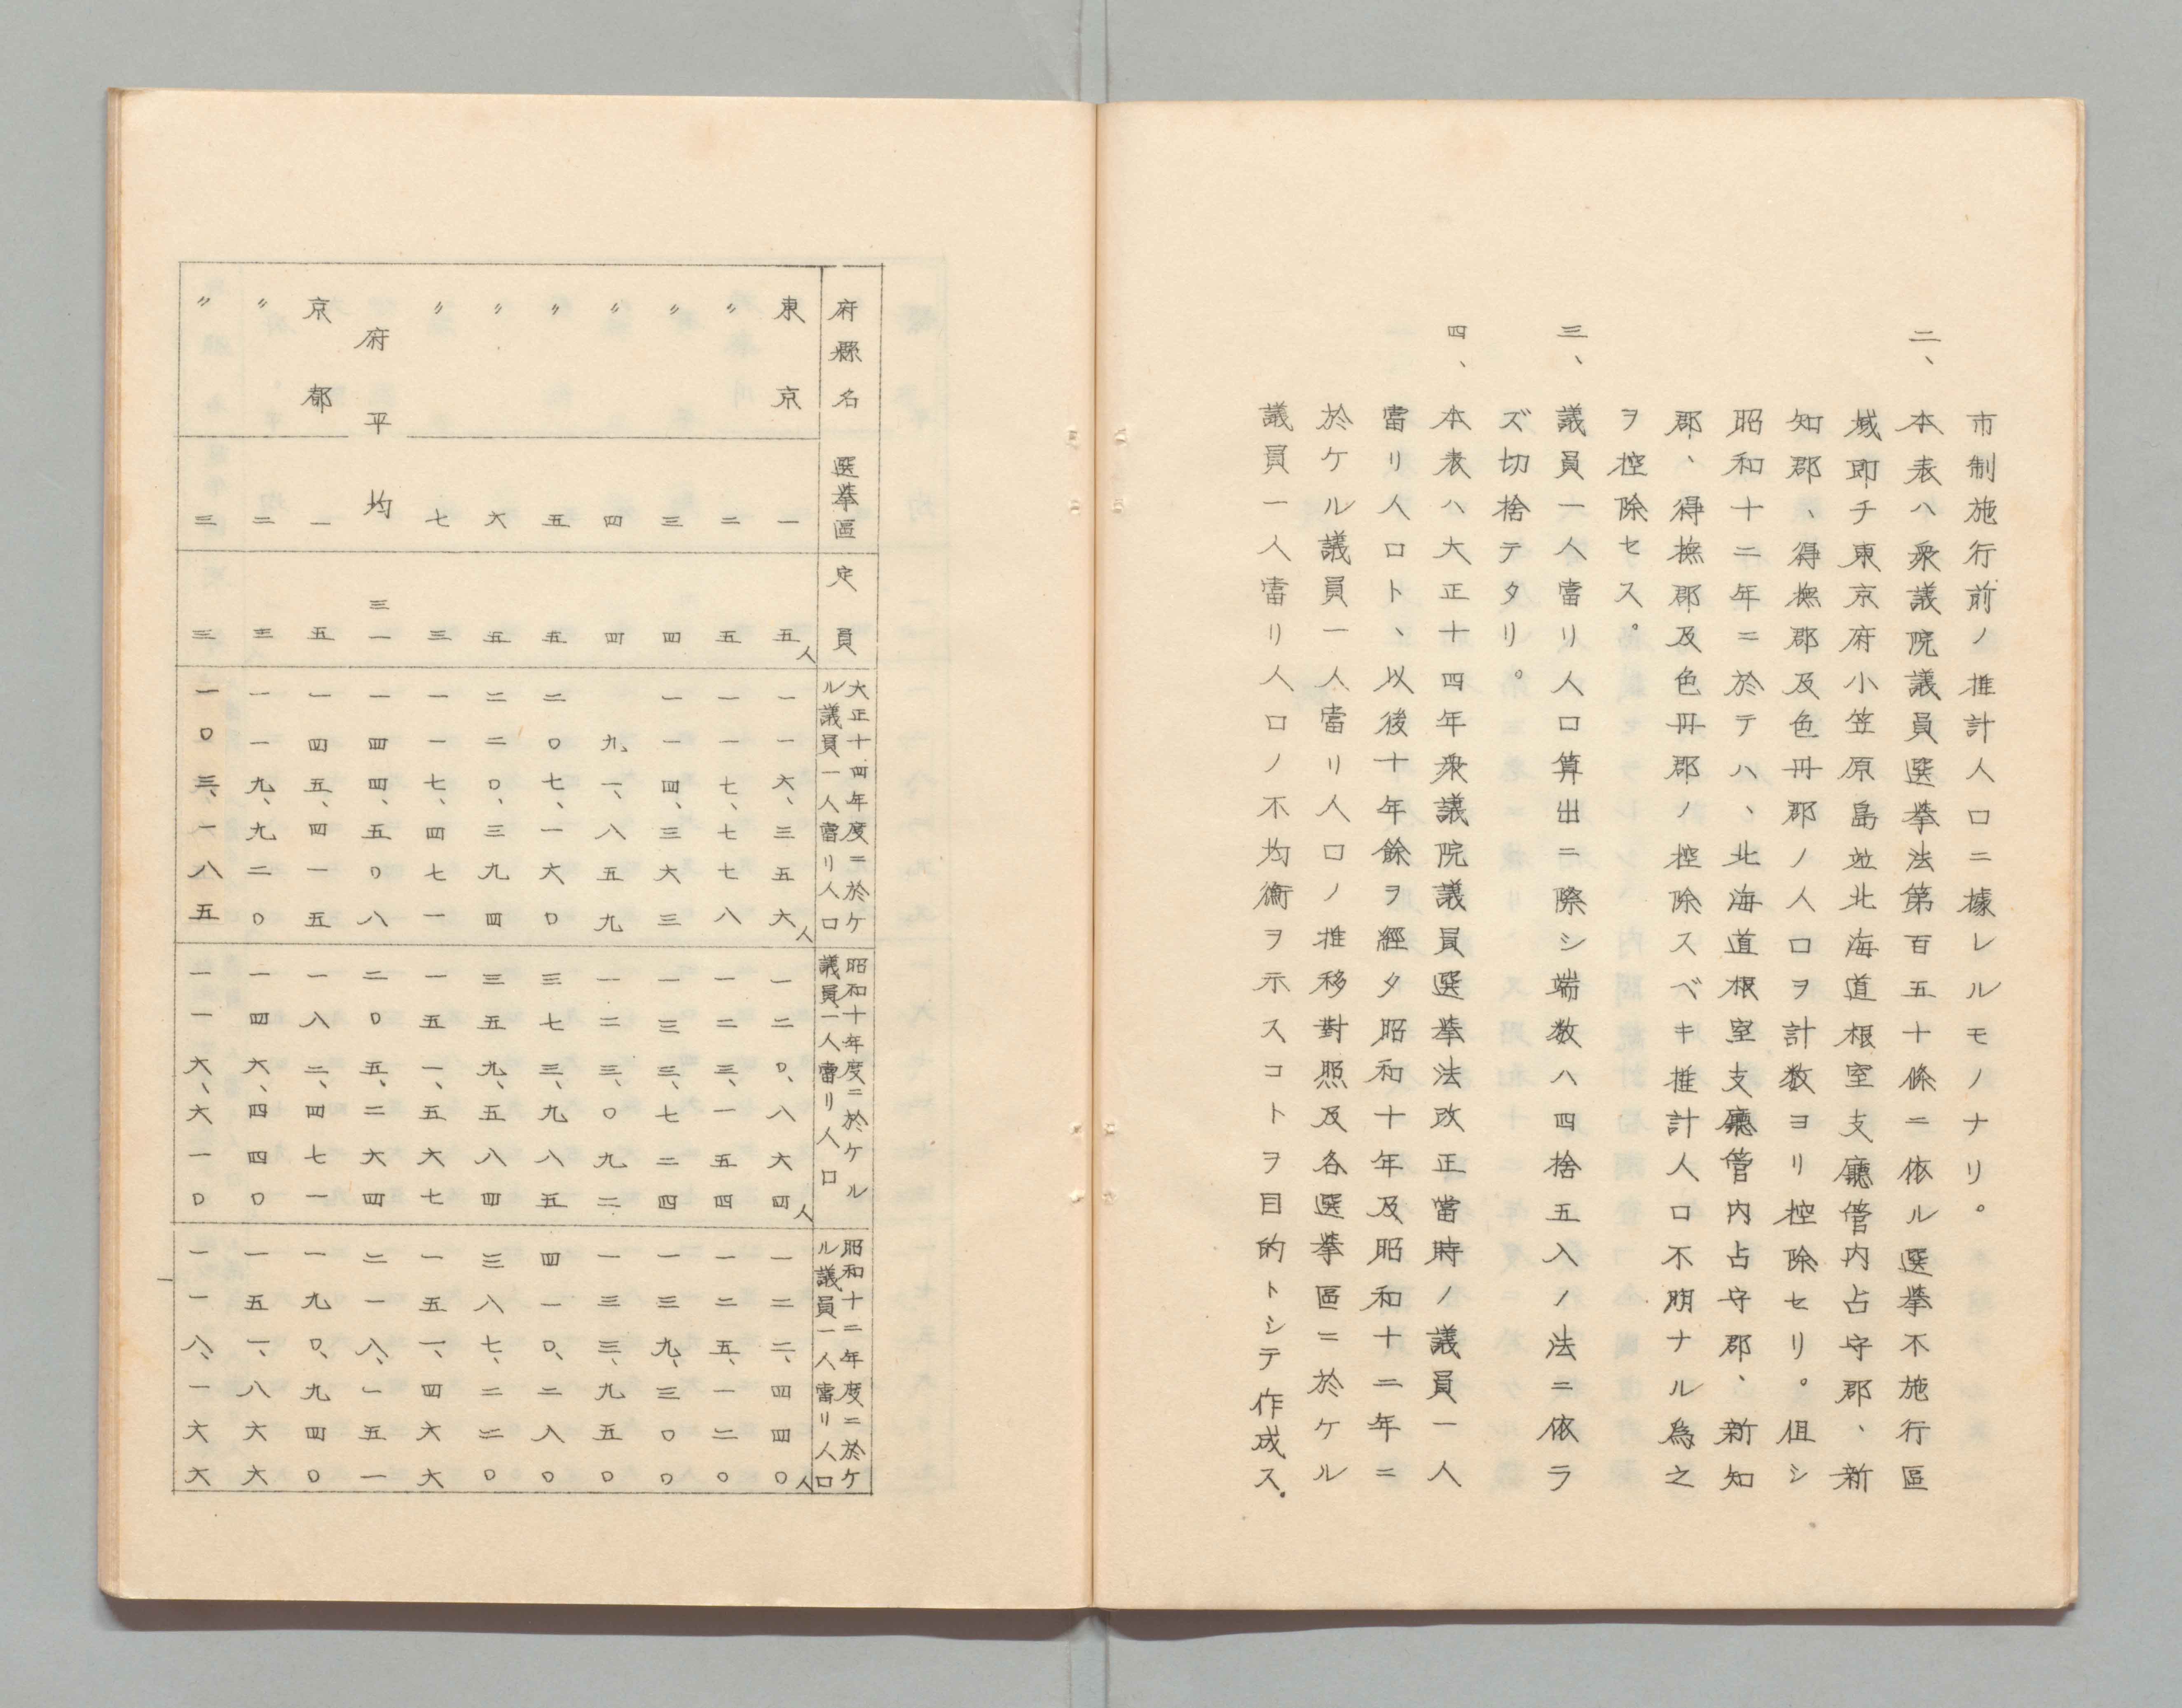 市制施行前ノ推計人口ニ據レルモノナリ。
二、本表ハ衆議院議員選挙法第百五十條ニ依ル選挙不施行區
域即チ東京府小笠原島竝北海道根室支廳管内占守郡、新
知郡、得撫郡及色丹郡ノ人口ヲ計数ヨリ控除セリ。但シ
昭和十二年ニ於テハ、北海道根室支廳管内占守郡、新知
郡、得撫郡及色丹郡ノ控除スベキ推計人口不明ナル為之
ヲ控除セス。
三、議員一人當リ人口算出ニ際シ端数ハ四捨五入ノ法ニ依ラ
ズ切捨テタリ。
四、本表ハ大正十四年衆議院議員選挙法改正當時ノ議員一人
當リ人口ト、以後十年餘ヲ經タ昭和十年及昭和十二年ニ
於ケル議員一人當リ人口ノ推移對照及各選挙區ニ於ケル
議員一人當リ人口ノ不均衡ヲ示スコトヲ目的トシテ作成ス.
府縣名 選挙區 定員 大正十四年度ニ於ケル議員一人當リ人口 昭和十年度ニ於ケル議員一人當リ人口 昭和十二年度ニ於ケル議員一人當リ人口
東京 一 五人 一一六、三五六人 一二〇、八六四人 一二二、四四〇人
〃 二 五 一一七、七七八 一二三、一五四 一二五、一二〇
〃 三 四 一一四、三六三 一三三、七二四 一三九、三〇〇
〃 四 四 九一、八五九 一二三、〇九二 一三三、九五〇
〃 五 五 二〇七、一六〇 三七三、九八五 四一〇、二八〇
〃 六 五 二二〇、三九四 三五九、五八四 三八七、二二〇
〃 七 三 一一七、四七一 一五一、五六七 一五一、四六六
府平均 三一 一四四、五〇八 二〇五、二六四 二一八、一五一
京都 一 五 一四五、四一五 一八二、四七一 一九〇、九四〇
〃 二 三 一一九、九二〇 一四六、四四〇 一五一、八六六
〃 三 三 一〇三、一八五 一一六、六一〇 一一八、一六六
一